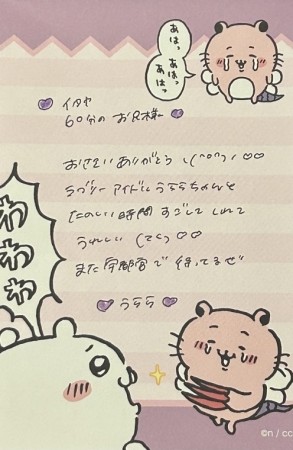 あはっ
あはっ
あはっ
イタヤ
60分の お兄様
おさそい ありがとう
ラブリー アイドル うららちゃんと
たのしい 時間 すごしてくれて
うれしい
また 宇都宮で 待ってるぜ
うらら
わ
わ
わ
©n / cc